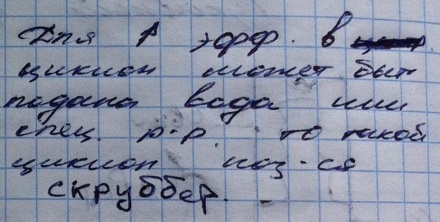 Для ↑ эфф. в
циклон может быт
подана вода или
спец. р-р. то такой
циклон наз-ся
скруббер.